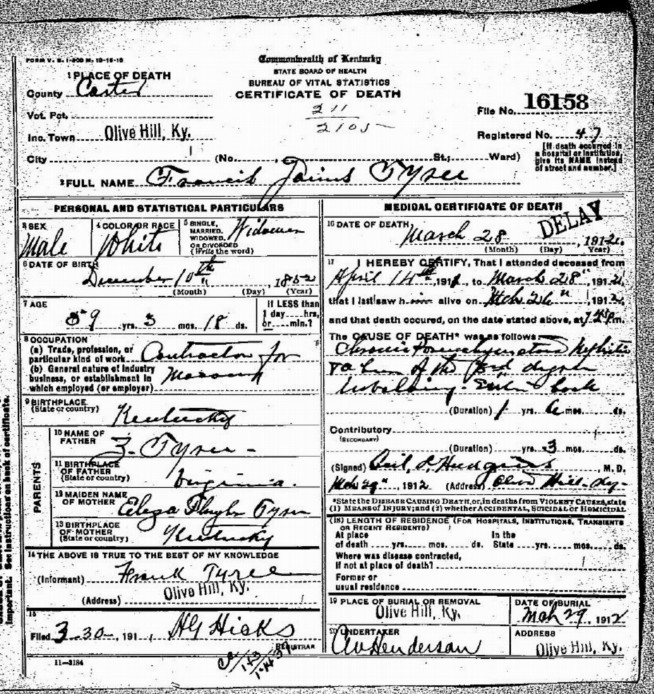 FORM V. S. 1-
Commonwealth of Kentucky
STATE BOARD OF HEALTH
BUREAU OF VITAL STATISTICS
CERTIFICATE OF DEATH
1 PLACE OF DEATH
County Carter
Vot. Pct.
Inc. Town Olive Hill, Ky.
City (No. St.; Ward)
211
2105
File No. 16158
Registered No. 47
[If death occurred in a hospital or institution, give its NAME instead of street and number.]
2 FULL NAME Francis Tyree
PERSONAL AND STATISTICAL PARTICULARS
3 SEX
Male
4 COLOR OR RACE
White
5 SINGLE, MARRIED, WIDOWED, OR DIVORCED (Write the word)
Widower
6 DATE OF BIRTH
December 10th, 1852
(Month) (Day) (Year)
7 AGE
59 yrs. 3 mos. 18 ds.
If LESS than 1 day....hrs. or....min.?
8 OCCUPATION
(a) Trade, profession, or particular kind of work Contractor for
(b) General nature of industry business, or establishment in which employed (or employer) Masonry
9 BIRTHPLACE
(State or country) Kentucky
PARENTS
10 NAME OF FATHER Z. Tyree
11 BIRTHPLACE OF FATHER (State or country) Virginia
12 MAIDEN NAME OF MOTHER Eliza Tyree
13 BIRTHPLACE OF MOTHER (State or country) Kentucky
14 THE ABOVE IS TRUE TO THE BEST OF MY KNOWLEDGE
(Informant) Frank Tyree
(Address) Olive Hill, Ky.
15
Filed 3-30-191 HG Hicks
REGISTRAR
11-3184
MEDICAL CERTIFICATE OF DEATH
16 DATE OF DEATH DELAY
March 28, 1912
(Month) (Day) (Year)
17 I HEREBY CERTIFY, That I attended deceased from
April 14th 191 , to March 28", 1912,
that I last saw him alive on Mch 26", 1912,
and that death occured, on the date stated above, at m.
The CAUSE OF DEATH* was as follows:
Chronic Parenchymatous Nephritis
(Duration) 1 yrs. 6 mos. ds.
Contributory
(SECONDARY)
(Duration) yrs. 3 mos. ds.
(Signed) Hudgins, M. D.
Mch 29", 1912 (Address) Olive Hill Ky
*State the DISEASE CAUSING DEATH, or, in deaths from VIOLENT CAUSES, state (1) MEANS OF INJURY; and (2) whether ACCIDENTAL, SUICIDAL or HOMICIDAL
18 LENGTH OF RESIDENCE (FOR HOSPITALS, INSTITUTIONS, TRANSIENTS OR RECENT RESIDENTS)
At place of death....yrs....mos....ds. In the State....yrs....mos....ds.
Where was disease contracted, If not at place of death?
Former or usual residence
19 PLACE OF BURIAL OR REMOVAL
Olive Hill, Ky.
DATE OF BURIAL
Mch 29, 1912
20 UNDERTAKER
Henderson
ADDRESS
Olive Hill, Ky.
important. See instructions on back of certificate.